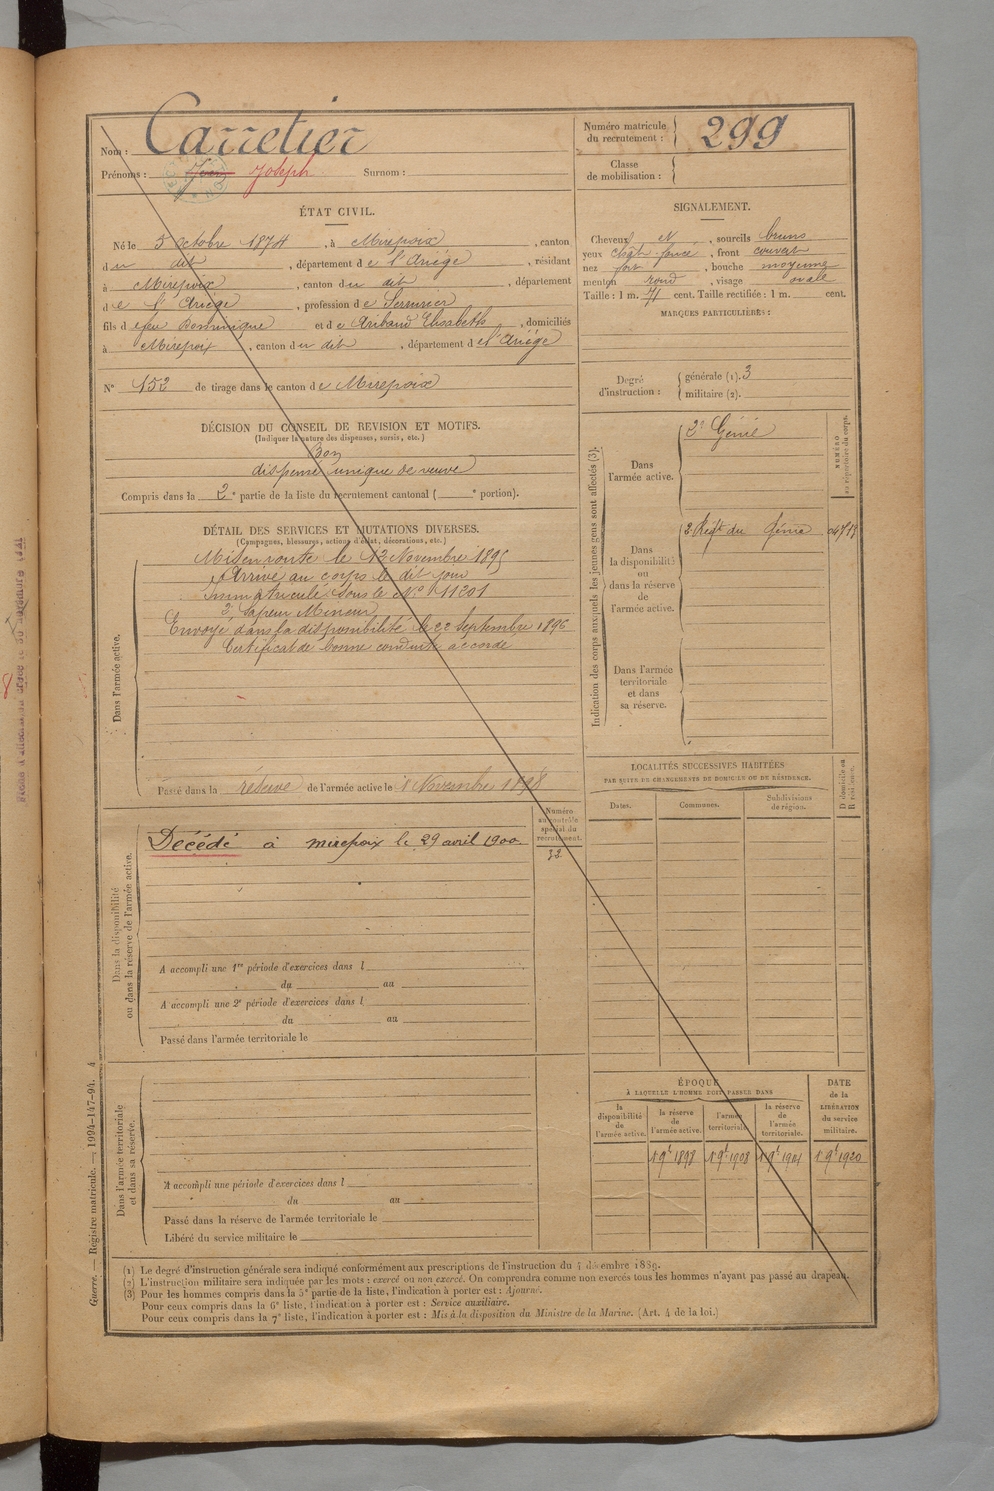 Nom : Carretier
Prénoms : Jean Joseph Surnom :
Numéro matricule du recrutement : 299
Classe de mobilisation :
ÉTAT CIVIL.
Né le 5 octobre 1874, à Mirepoix, canton
du dit, département de l'Ariège, résidant
à Mirepoix, canton du dit, département
de l'Ariège, profession de Serrurier
fils de feu Dominique et de Aribaud Elisabeth, domiciliés
à Mirepoix, canton du dit, département de l'Ariège
N° 152 de tirage dans le canton de Mirepoix
SIGNALEMENT.
Cheveux et, sourcils bruns
yeux chât. foncé, front couvert
nez fort, bouche moyenne
menton rond, visage ovale
Taille : 1 m. 71 cent. Taille rectifiée : 1 m. cent.
MARQUES PARTICULIÈRES :
Degré d'instruction :
générale (1). 3
militaire (2).
DÉCISION DU CONSEIL DE REVISION ET MOTIFS.
(Indiquer la nature des dispenses, sursis, etc.)
Bon
dispensé unique de veuve
Compris dans la 2e partie de la liste du recrutement cantonal ( e portion).
DÉTAIL DES SERVICES ET MUTATIONS DIVERSES.
(Campagnes, blessures, actions d'éclat, décorations, etc.)
Dans l'armée active.
Mis en route le 12 Novembre 1895
Arrivé au corps le dit jour
Immatriculé sous le N° 11201
2e Sapeur Mineur
Envoyé dans la disponibilité le 22 Septembre 1896
Certificat de bonne conduite accordé
Passé dans la réserve de l'armée active le 1 Novembre 1898
Indication des corps auxquels les jeunes gens sont affectés (3).
NUMÉRO au répertoire du corps.
Dans l'armée active.
2e Génie
Dans la disponibilité ou dans la réserve de l'armée active.
2 Régt du Génie
Dans l'armée territoriale et dans sa réserve.
LOCALITÉS SUCCESSIVES HABITÉES
PAR SUITE DE CHANGEMENTS DE DOMICILE OU DE RÉSIDENCE.
Dates.
Communes.
Subdivisions de région.
D domicile ou R résidence.
Dans la disponibilité ou dans la réserve de l'armée active.
Numéro au contrôle spécial du recrutement.
32
Décédé à mirepoix le 29 avril 1900.
A accompli une 1re période d'exercices dans l
du au
A accompli une 2e période d'exercices dans l
du au
Passé dans l'armée territoriale le
Dans l'armée territoriale et dans sa réserve.
A accompli une période d'exercices dans l
du au
Passé dans la réserve de l'armée territoriale le
Libéré du service militaire le
ÉPOQUE
À LAQUELLE L'HOMME DOIT PASSER DANS
la disponibilité de l'armée active.
la réserve de l'armée active.
l'armée territoriale.
la réserve de l'armée territoriale.
DATE de la LIBÉRATION du service militaire.
1 9e 1898
1 9e 1908
1 9e 1920
(1) Le degré d'instruction générale sera indiqué conformément aux prescriptions de l'instruction du 4 décembre 1889.
(2) L'instruction militaire sera indiquée par les mots : exercé ou non exercé. On comprendra comme non exercés tous les hommes n'ayant pas passé au drapeau.
(3) Pour les hommes compris dans la 5e partie de la liste, l'indication à porter est : Ajourné.
Pour ceux compris dans la 6e liste, l'indication à porter est : Service auxiliaire.
Pour ceux compris dans la 7e liste, l'indication à porter est : Mis à la disposition du Ministre de la Marine. (Art. 4 de la loi.)
Guerre. — Registre matricule. — 1994-147-94. 4